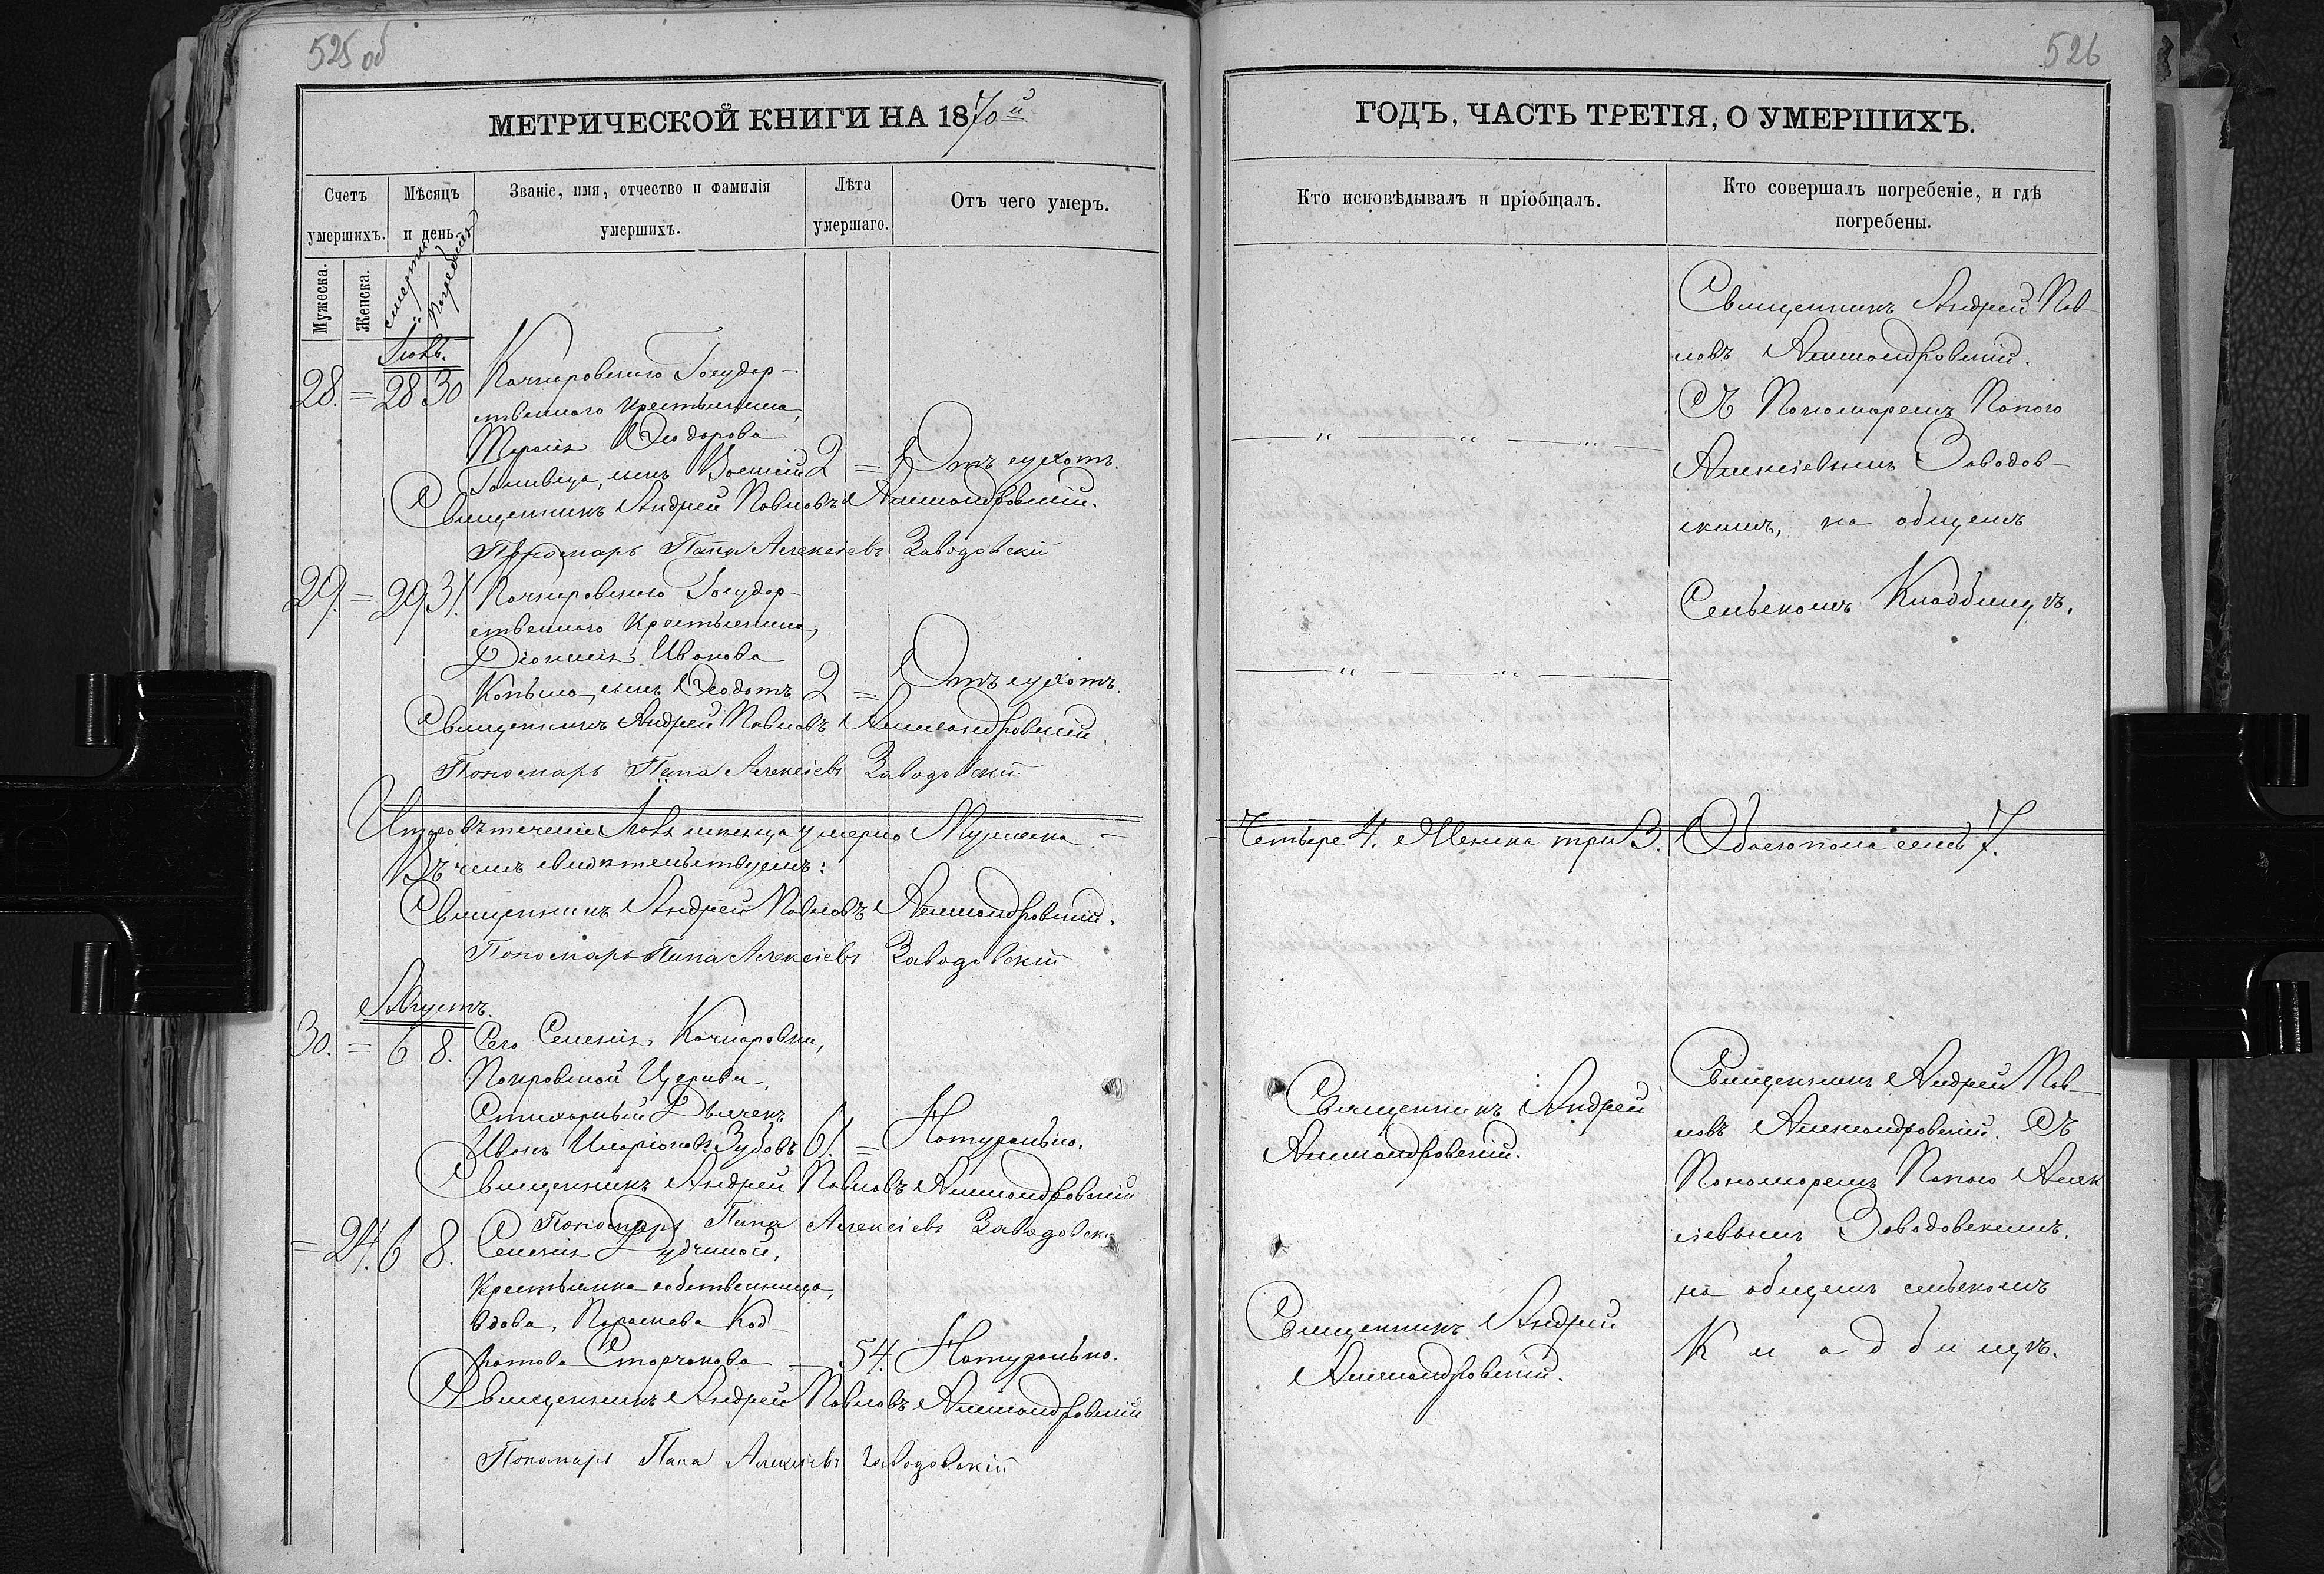 525 об
МЕТРИЧЕСКОЙ КНИГИ НА 1870й
Счетъ умершихъ.
Мѣсяцъ и день.
Званіе, имя, отчество и фамилія умершихъ.
Лѣта умершаго.
Отъ чего умеръ.
Мужеска.
Женска.
смерти
погребенія
Іюль.
28. = 28 30 Качкаровскаго Государ-
ственнаго крестьянина,
Тарасія Ѳеодорова
сынъ 2 = Отъ сухотъ.
Священникъ Андрей Павловъ Александровскій.
Пономарь Папа Алексіевъ Заводовскій
29. = 29 31. Качкаровскаго Государ-
ственнаго Крестьянина,
Діонисія Иванова
сынъ Ѳеодотъ 2 = Отъ сухотъ.
Священникъ Андрей Павловъ Александровскій
Пономарь Папа Алексіевъ Заводовскій
Итого въ теченіи Іюль мѣсяца умерло Мужеска
Въ чемъ свидѣтельствуемъ:
Священникъ Андрей Павловъ Александровскій.
Пономарь Папа Алексіевъ Заводовскій
Августъ.
30. = 6 8. Сего Селенія Качкаровки,
Покровской Церкви,
Стихарный Дьячекъ
Иванъ Иларіоновъ Зубовъ 61. = Натурально.
Священникъ Андрей Павловъ Александровскій
Пономарь Папа Алексіевъ Заводовскій
= 24. 6 8. Селенія Дудчиной,
Крестьянка собственница,
вдова, Параскева Код-
ратова Сторчакова — 54. Натурально.
Священникъ Андрей Павловъ Александровскій
Пономарь Папа Алексіевъ Заводовскій
526
ГОДЪ, ЧАСТЬ ТРЕТІЯ, О УМЕРШИХЪ.
Кто исповѣдывалъ и пріобщалъ.
Кто совершалъ погребеніе, и гдѣ
погребены.
Священникъ Андрей Пав-
ловъ Александровскій.
Съ Пономаремъ Папою
Алексіевымъ Заводов-
скимъ, на общемъ
Сельскомъ Кладбищѣ.
Четыре 4. Женска три 3. Обоего пола семь 7.
Священникъ Андрей
Александровскій.
Священникъ Андрей Пав-
ловъ Александровскій. Съ
Пономаремъ Папою Алек
сіевымъ Заводовскимъ.
на общемъ сельскомъ
Кладбищѣ.
Священникъ Андрей
Александровскій.